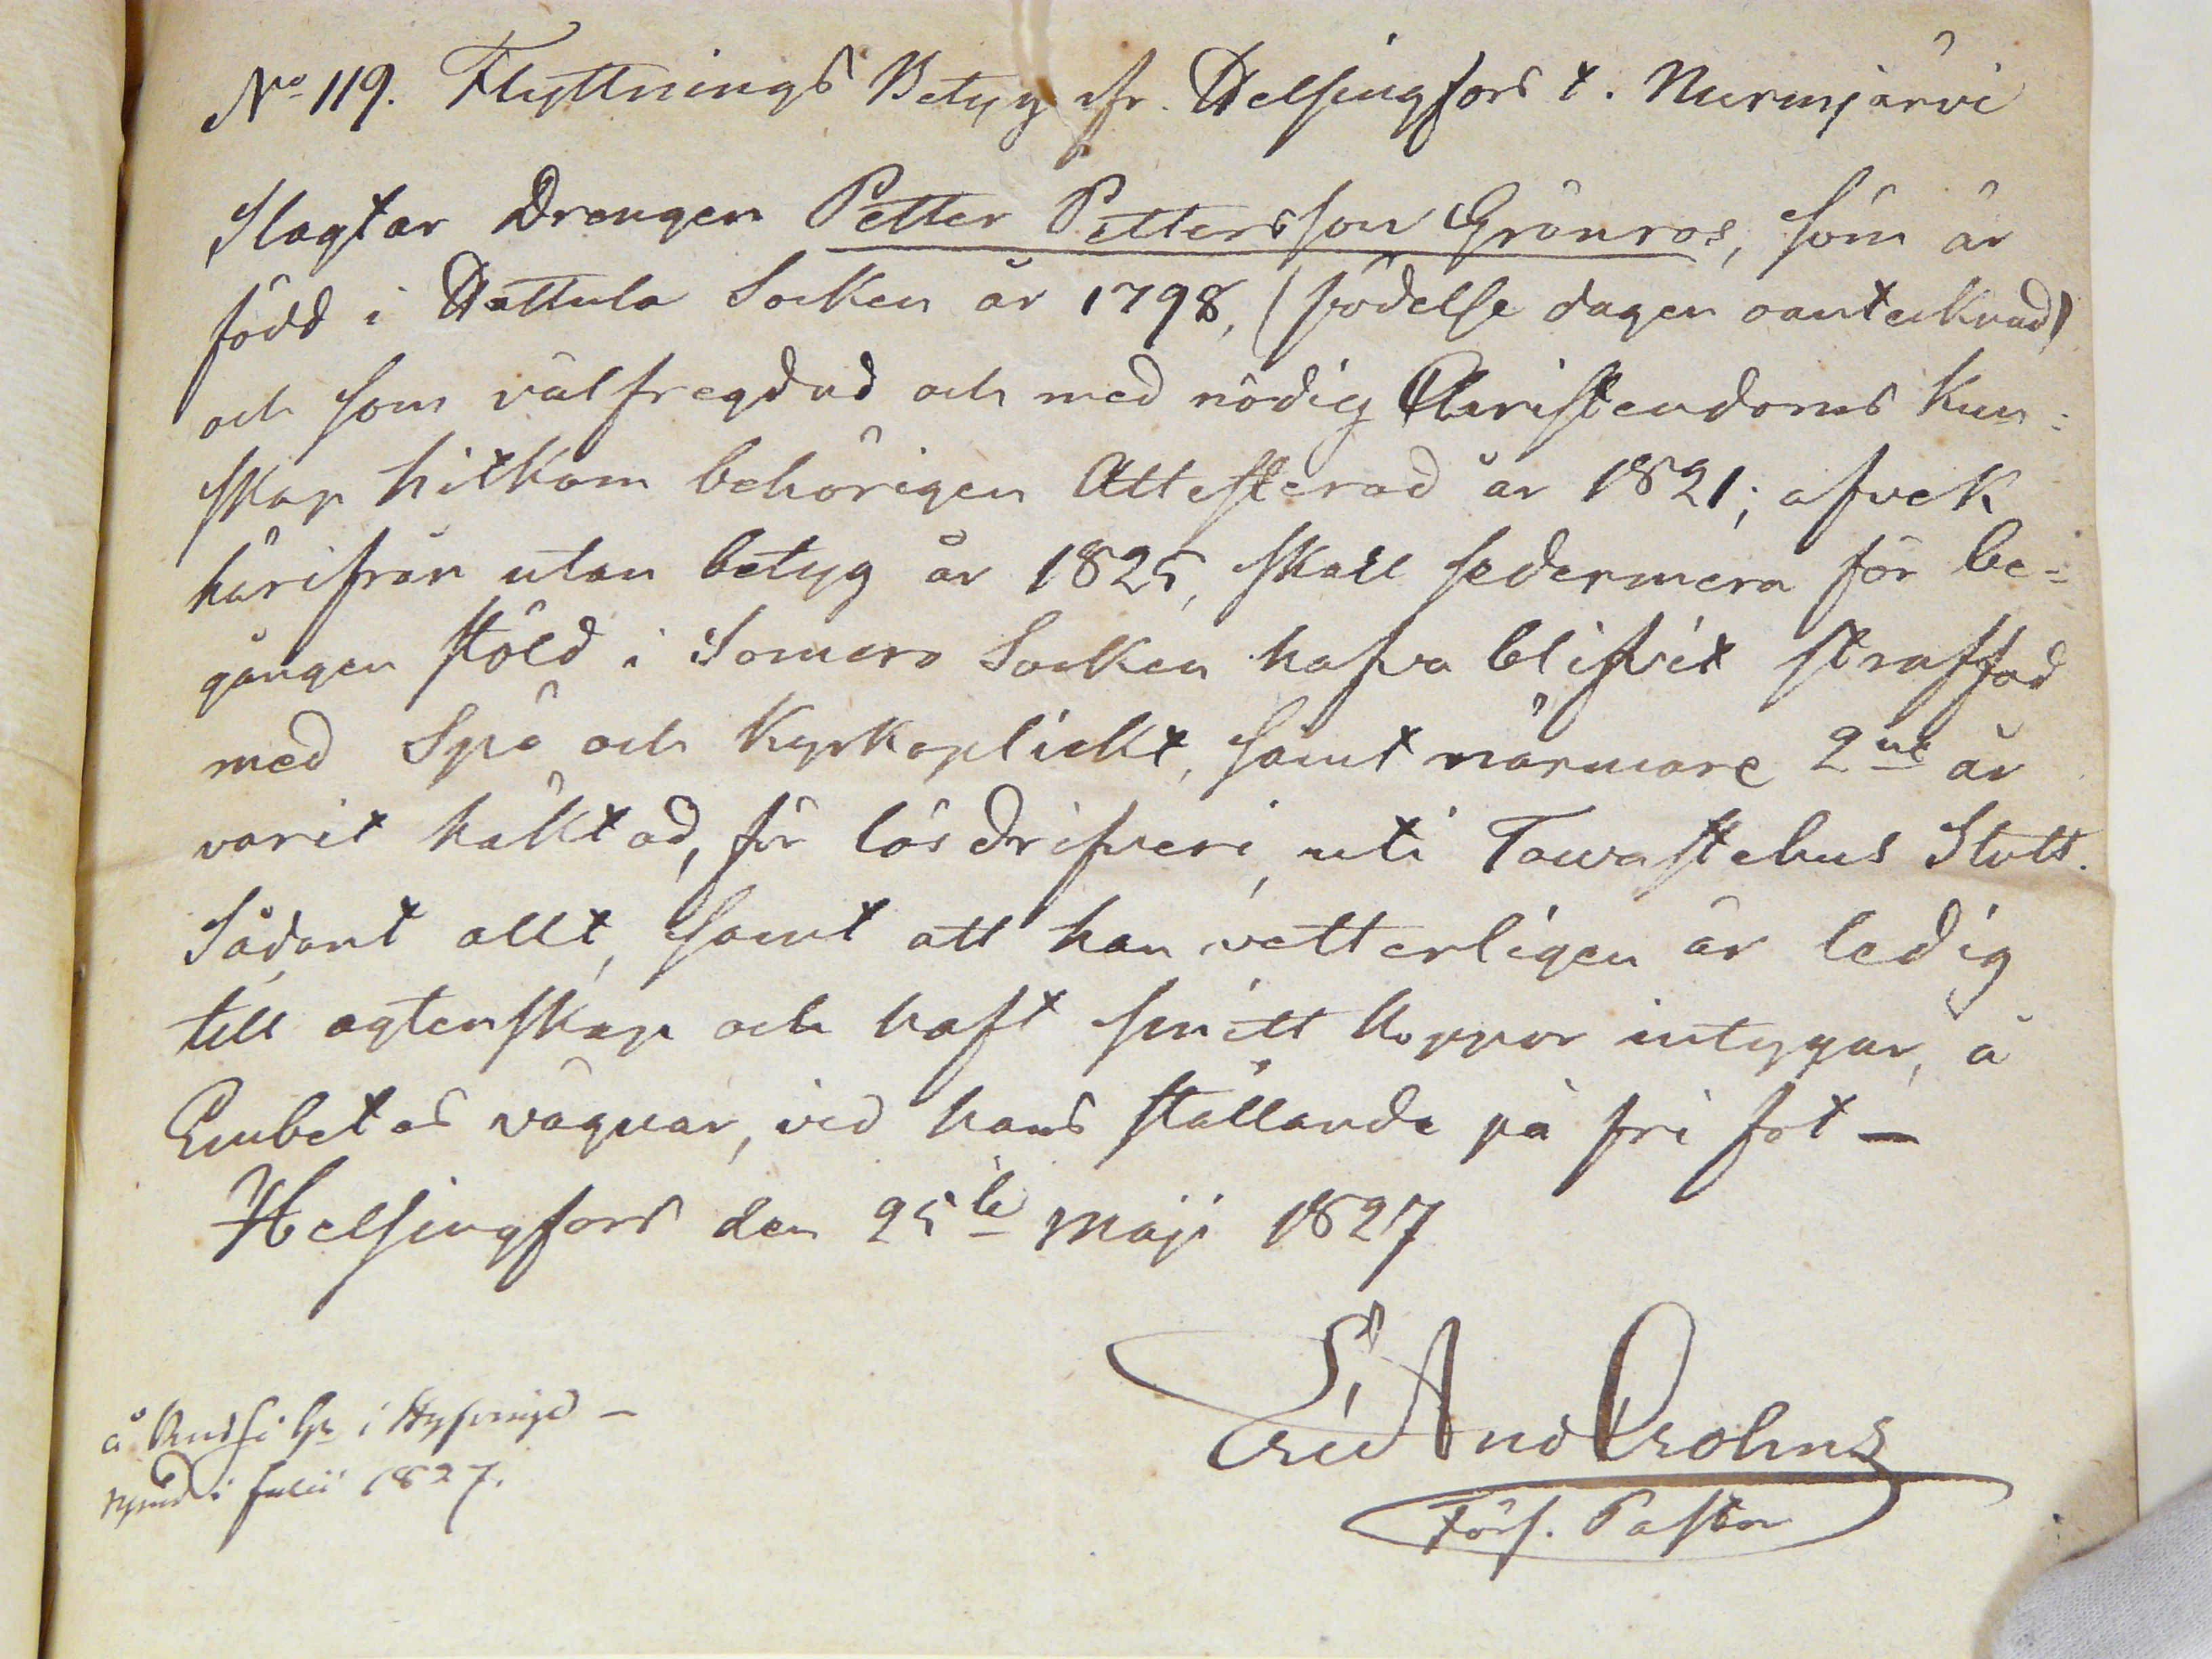 No 119. Flyttnings Betyg fr. Helsingfors t. Nurmijärvi
Slagtar Drengen Petter Pettersson Grönros, som är
född i Hattula Socken år 1798, (födelse dagen oantecknad)
och som välfregdad och med nödig Christendoms Kun=
skap hitkom behörigen Attesterad år 1821; afvek
härifrån utan betyg år 1825, skall sedermera för be=
gången stöld i Somero Socken hafva blifvit straffad
med Spö och Kyrkoplickt, samt närmare 2ne år
varit häktad, för lösdrifveri, uti Tawastehus Slott.
Sådant allt, samt att han vetterligen är ledig
till ägtenskap och haft smitt Koppor intygar, å
Embetes vägnar, vid hans ställande på fri fot —
Helsingfors den 25te Maji 1827
Eric And Crohns
Förs. Pastor
å i —
i Julii 1827.